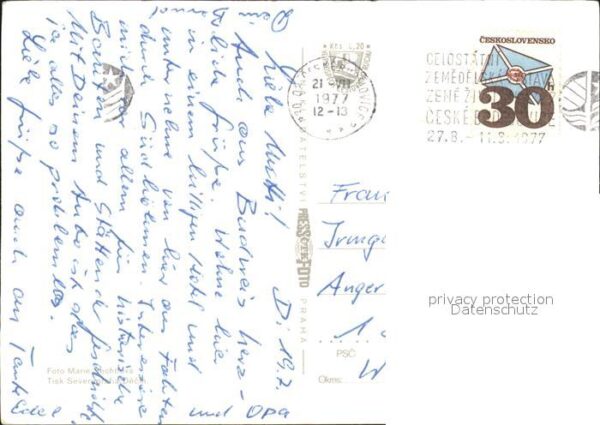 Di 19.7.
Liebe Mutti!
Auch aus Budweis herz-
liche Grüße. Wohne hier
in einem billigen Hotel und
unternehme von hier aus Fahrten
durch Südböhmen. Interessiere
mich vor allem für historische
Bauten und Stätten
Mit Deinem Auto ist das
ja alles so problemlos.
Liebe Grüße auch an Tante
und Opa
Foto Marie
Tisk Severografia Děčín
NAKLADATELSTVÍ
PRESSFOTO
PRAHA
Kčs 1,20
ČESKÉ BUDĚJOVICE
21.VII
1977
12-13
CELOSTÁTNÍ
ZEMĚDĚLSKÁ VÝSTAVA
ZEMĚ ŽIVITELKA
ČESKÉ BUDĚJOVICE
27.8. - 11.9.1977
ČESKOSLOVENSKO
30 h
Irmga
Anger
1
PSČ
W
Okres:
privacy protection
Datenschutz